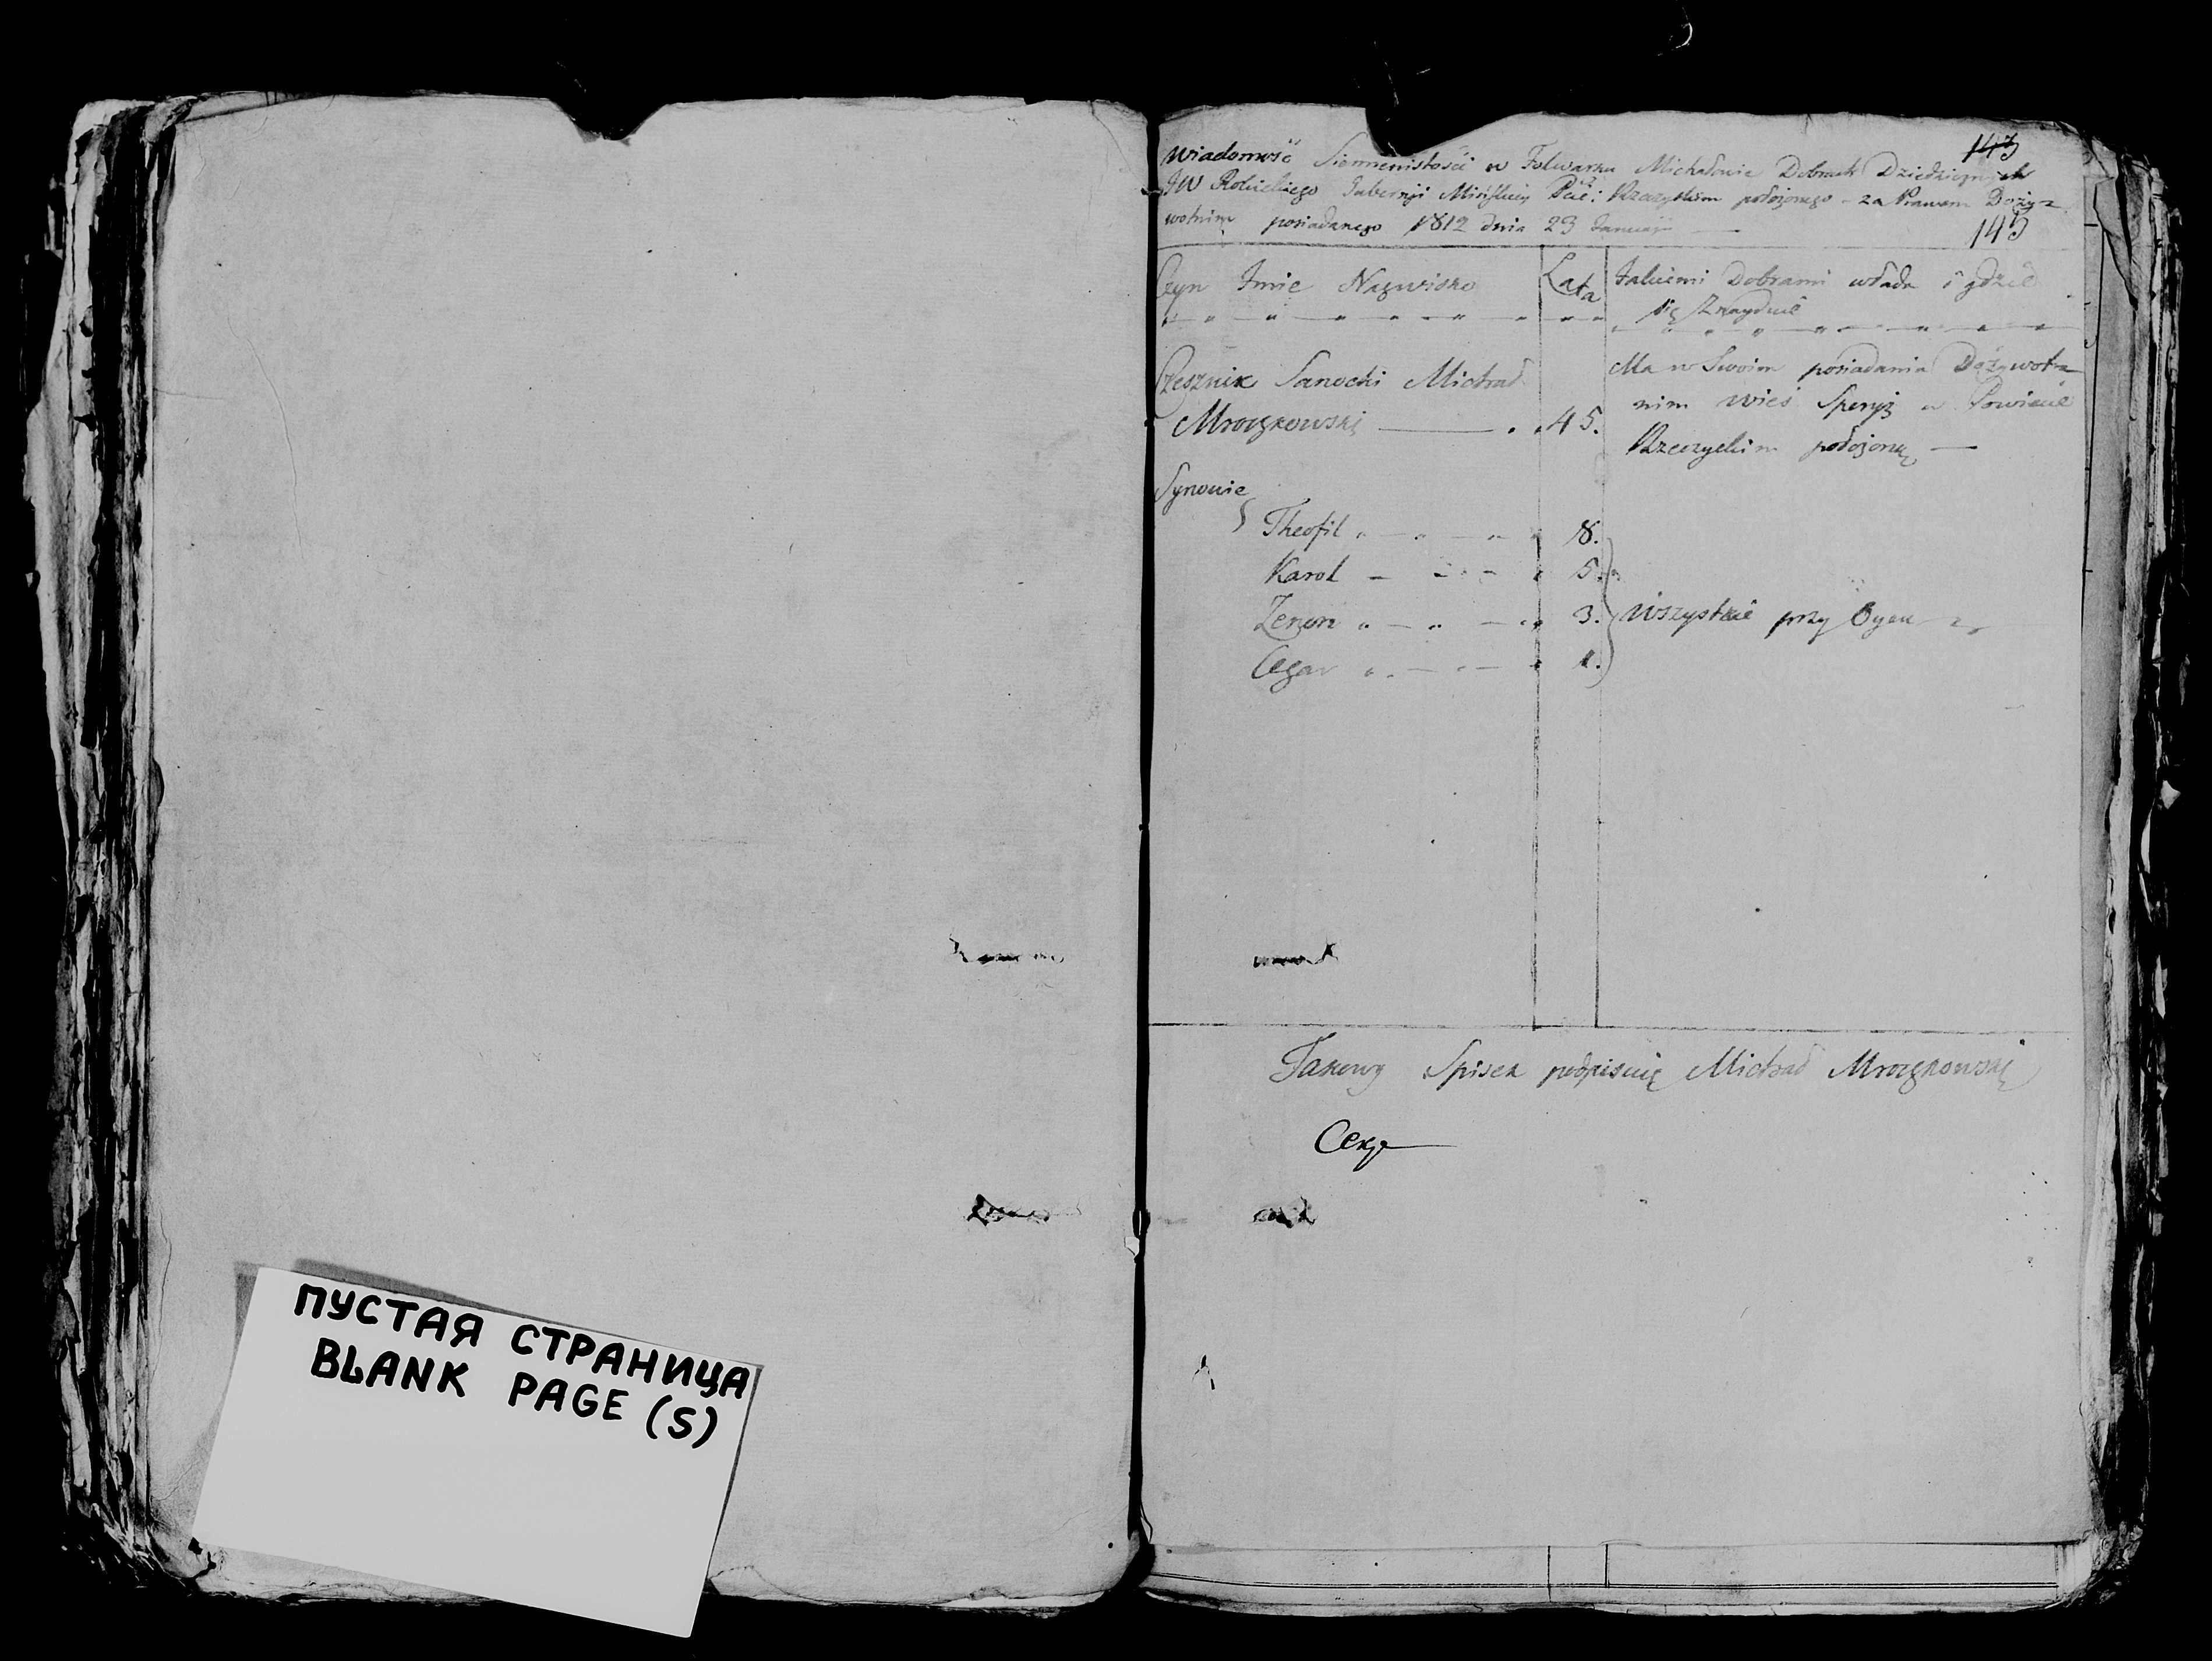 ПУСТАЯ СТРАНИЦА
BLANK PAGE (S)
143
Wiadomość w Folwarku Michałowie Dobrach Dziedzicznych
JW Rokickiego Guberniji Mińskiey Pcie: Rzeczyckim położonego - za Prawem Doży-
wotnim posiadanego 1812 dnia 23 Januaji
143
Czyn Imie Nazwisko
Lata
Jakiemi Dobrami włada i gdzie
się Znayduie
Czesznik Sanocki Michał
Mroczkowski 45.
Ma w Swoim posiadaniu Dożywot-
nim wieś w Powiecie
Rzeczyckim położoną
Synowie
Theofil 8.
Karol 5.
Zenon 3.
Cezar 1.
Wszystkie przy Oycu
Takowy Spisek podpisuię Michał Mroczkowski